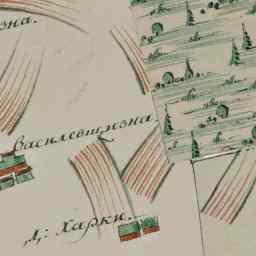 зна.
василевщизна
Д: Харки.